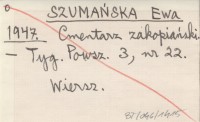 SZUMAŃSKA Ewa
1947. Cmentarz zakopiański.
– Tyg. Powsz. 3, nr 22.
Wiersz.